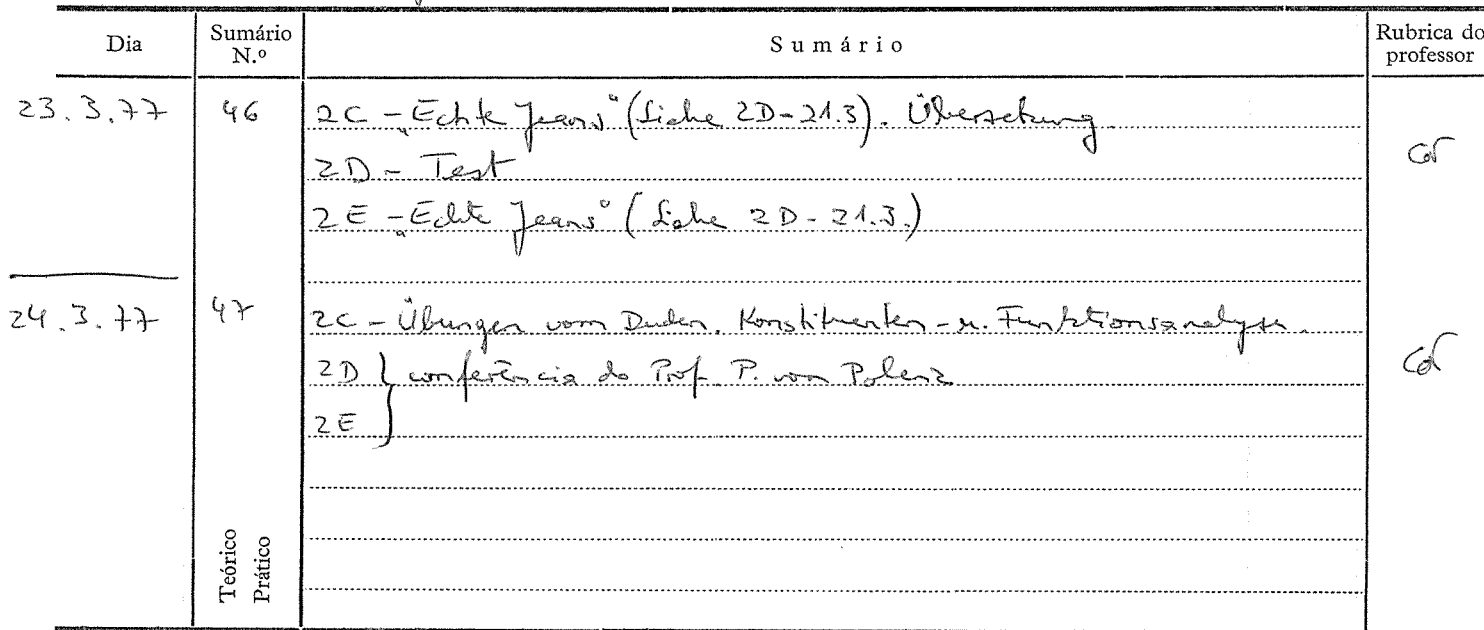 Dia Sumário N.º Sumário Rubrica do professor
23.3.77 46 2C - „Echte Jeans“ (Siehe 2D-21.3). Übersetzung
2D - Test
2E - „Echte Jeans“ (Siehe 2D-21.3.)
24.3.77 47 2C - Übungen vom Duden. Konstituenten- u. Funktionsanalyse.
2D } conferência do Prof. P. von Polenz
2E
Teórico
Prático